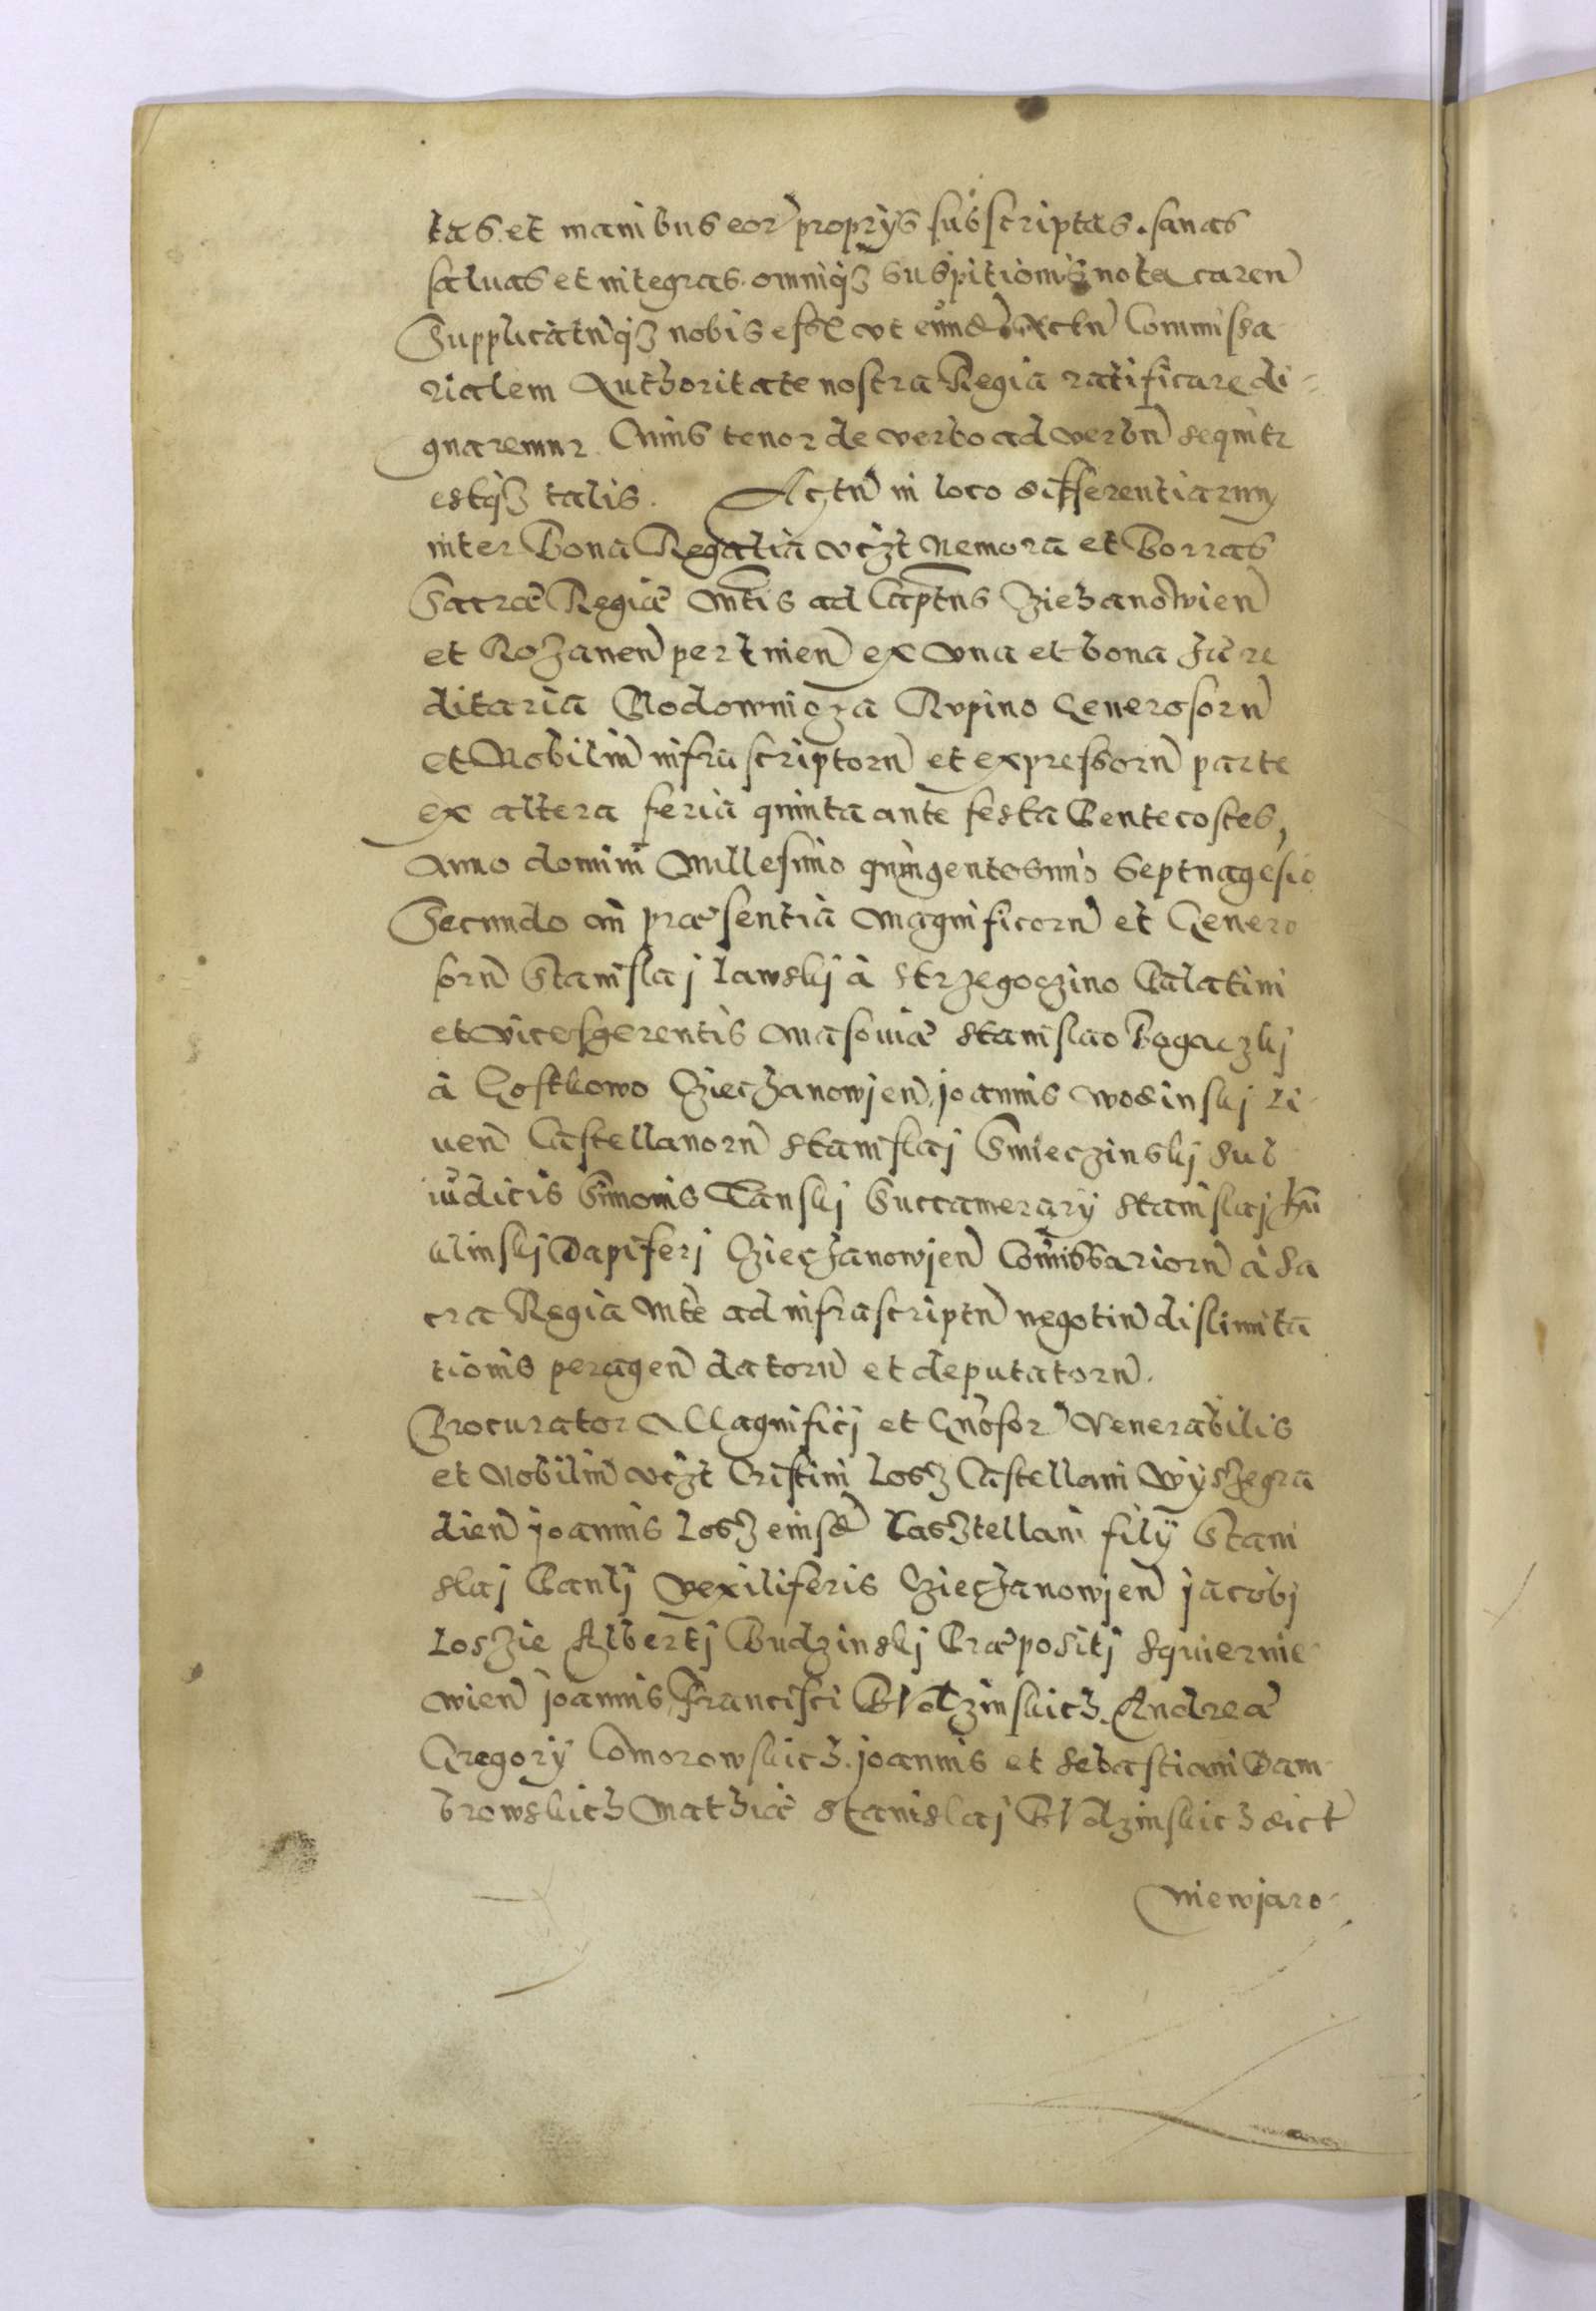 tas. et manibus eor proprÿs subscriptas. sanas
saluas et integras. omniqз suspitionis nota caren
Supplicatuqз nobis esse vt eund actu Commissa
rialem Authoritate nostra Regia ratificare di-
gnaremur. Cuius tenor de verbo ad verbu sequitr
estqз talis. Actu in loco differentiarum
inter Bona Regalia vczt Nemora et Borras
Sacræ Regiæ Mtis ad Captns Ziehanowien
et Rozanen pertinen ex vna et bona hære
ditaria Modownicza Rupino Generosoru
et Nobiliu infrascriptoru et expressoru parte
ex altera feria quinta ante festa Pentecostes,
Anno domini Millesimo quingentesimo Septuagesio
Secundo in præsentia Magnificoru et Genero
soru Stanislaj Lawskj à Strzegoczino Palatini
et vicesgerentis Masouiæ Stanislao Bogaczkj
à Gostkowo Cziechanowjen, joannis Wodinskj Li-
uen Castellanoru Stanislaj Smieczinskj Sub
iudicis Simonis Tanskj Succamerarÿ Stanislaj Hu
klinskj Dapiferj Cziechanowjen Comissarioru à Sa
cra Regia Mte ad infrascriptu negotiu dislimita
tionis peragen datoru et deputatoru.
Procurator Magnificj et Gnosor Venerabilis
et Nobiliu vczt Cristini Losz Castellani Wÿszegra
dien joannis Losz eiusd Casztellani filÿ Stani
slaj Paulj Vexiliferis Cziechanowjen jacobj
Loszie Albertj Budzinskj Præpositj Squiernie
wien joannis, Francisci Mlodzinskich. Andreæ
Gregorÿ Comorowskich. joannis et Sebastiani Dam
browskich Mathiæ Stanislaj Mlodzinskich dict
Niewjaro-